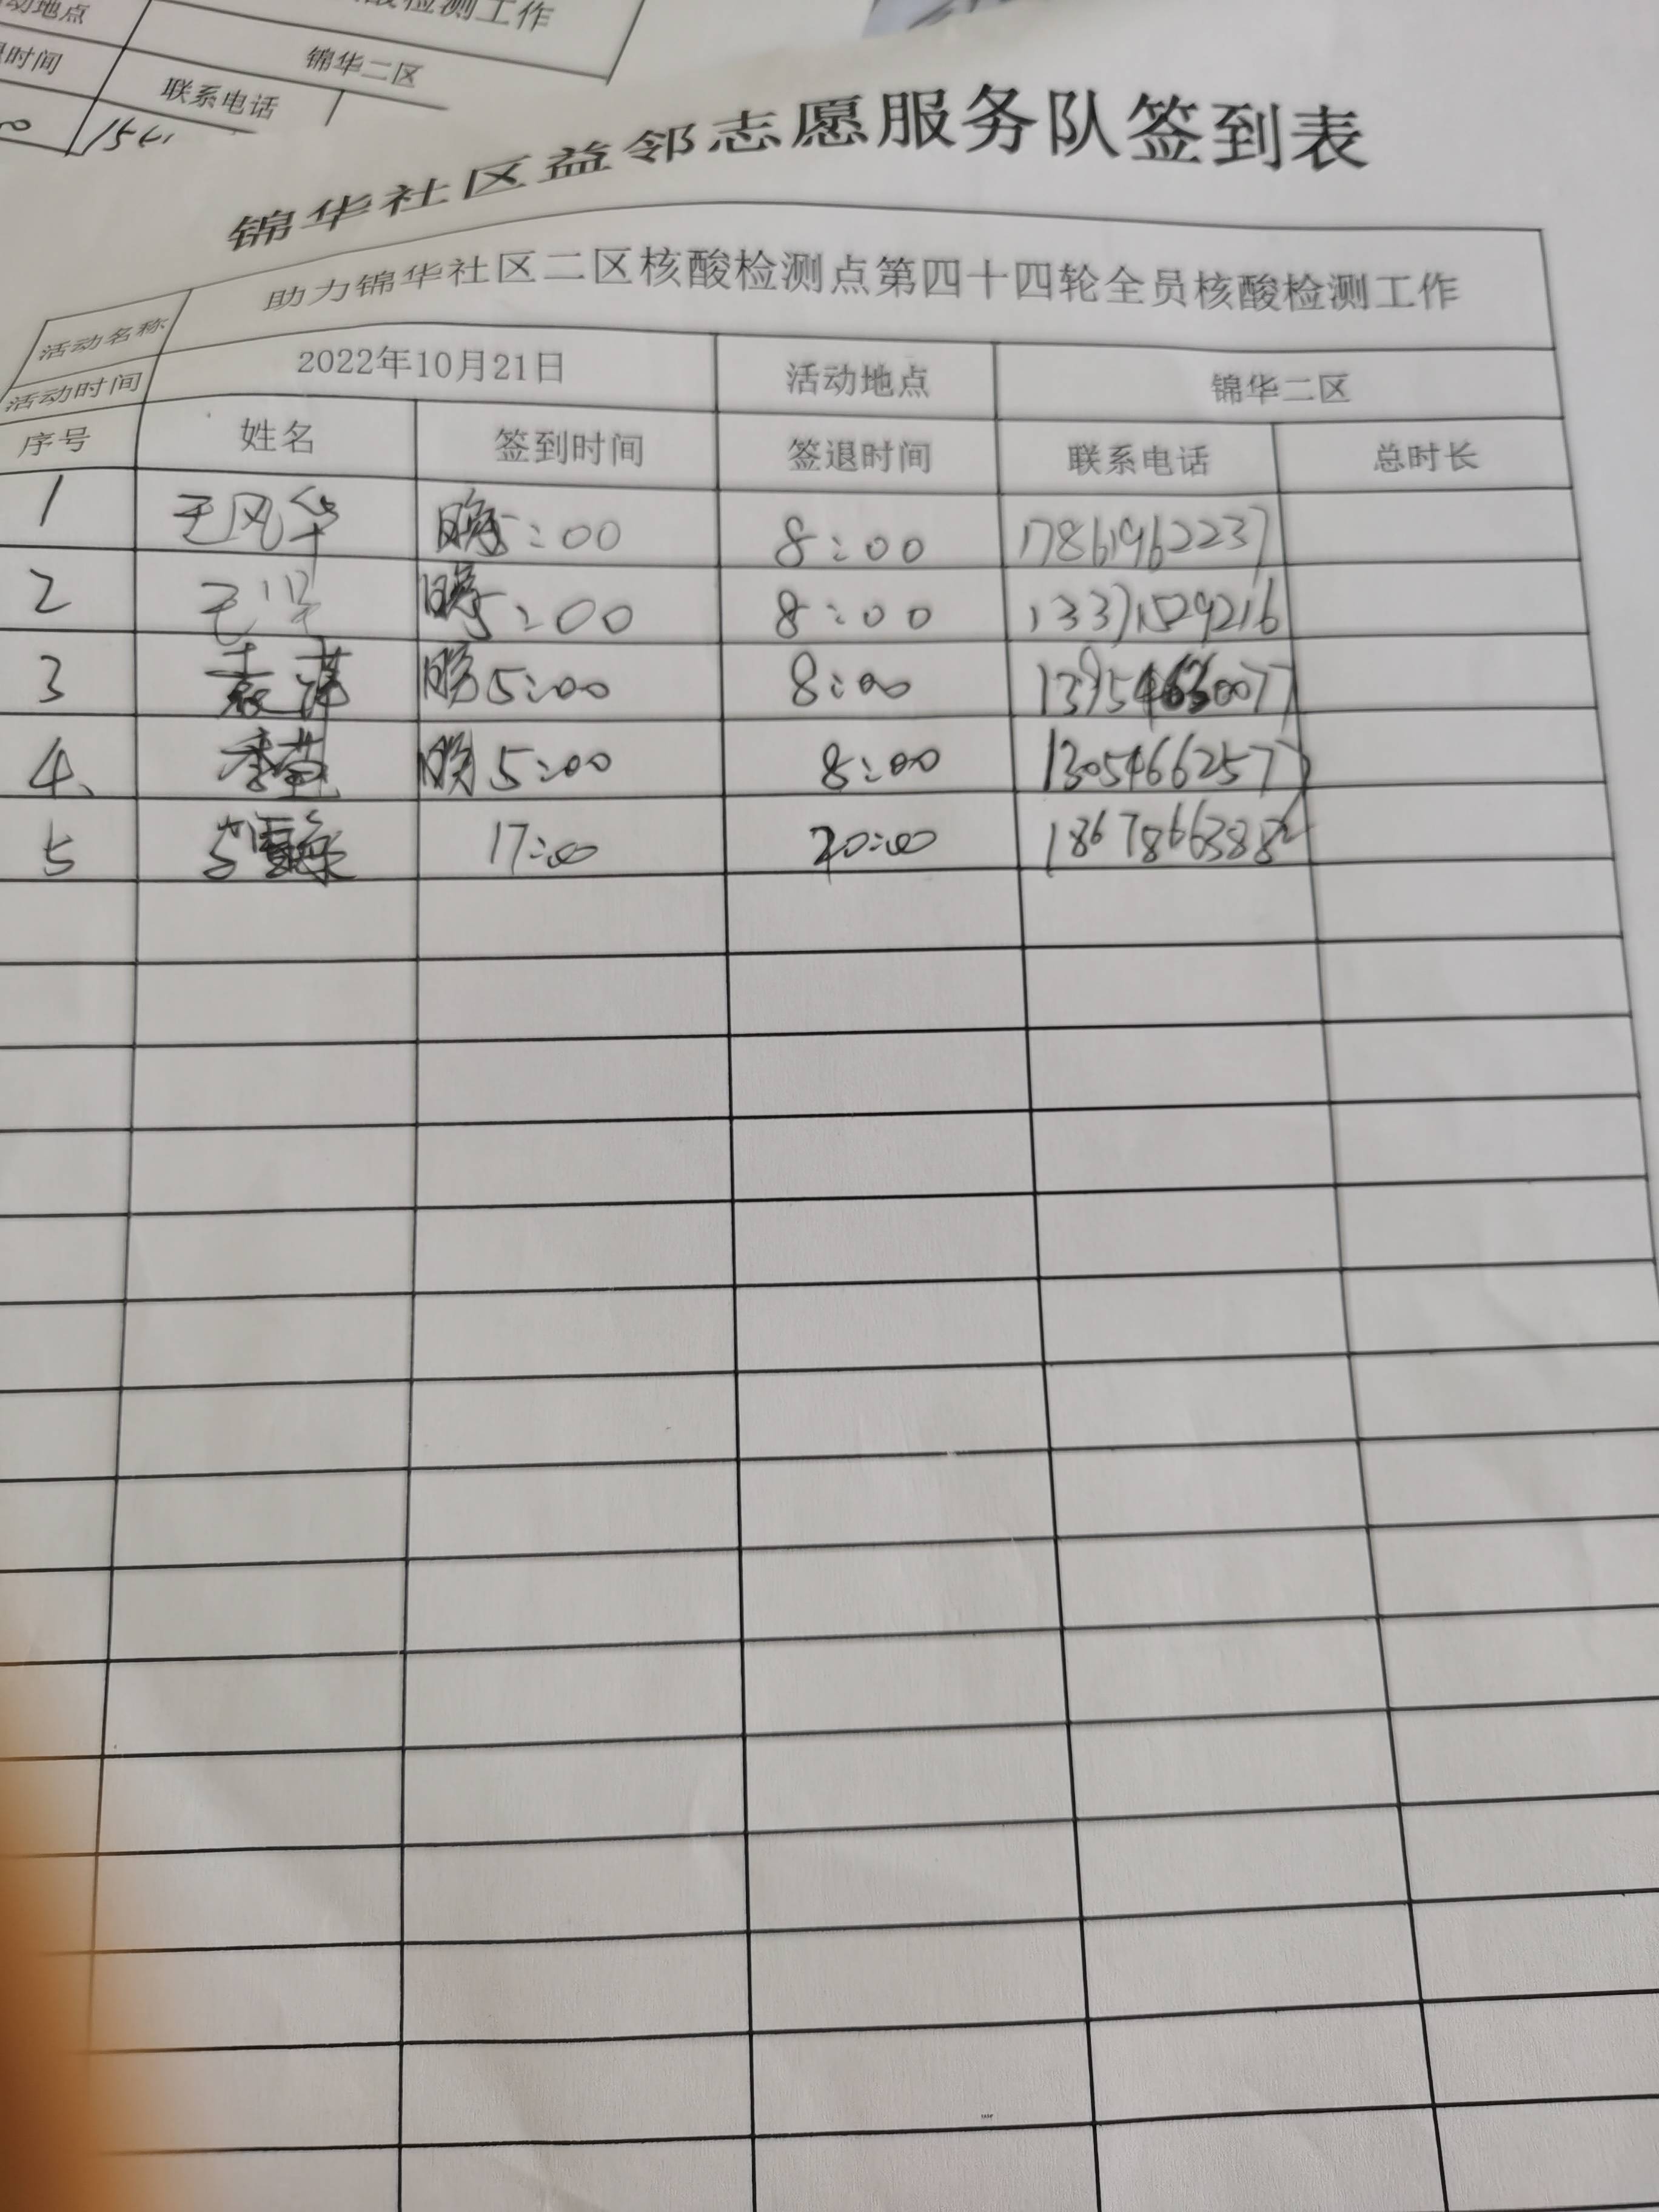 动地点
检测工作
时间
锦华二区
联系电话
锦华社区益邻志愿服务队签到表
活动名称 助力锦华社区二区核酸检测点第四十四轮全员核酸检测工作
活动时间 2022年10月21日 活动地点 锦华二区
序号 姓名 签到时间 签退时间 联系电话 总时长
1 王风华 5:00 8:00 17861962237
2 5:00 8:00 13371529216
3 5:00 8:00
4、 5:00 8:00 13054662577
5 17:00 20:00